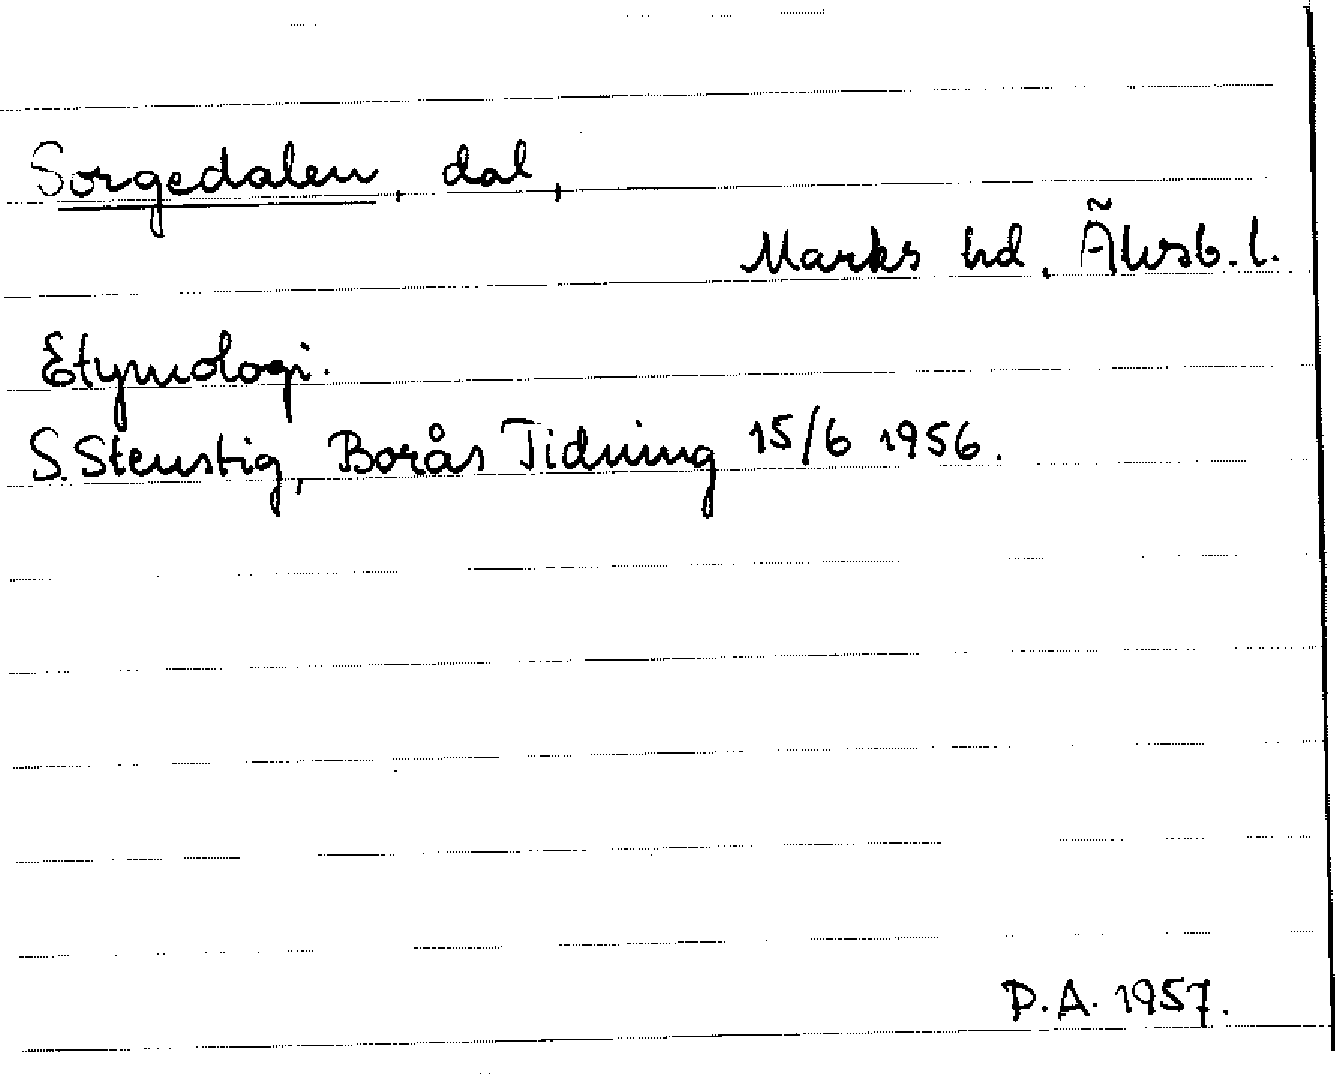 Sorgedalen, dal,
Marks hd, Älvsb. l.
Etymologi.
S. Stenstig, Borås Tidning 15/6 1956.
P.A. 1957.